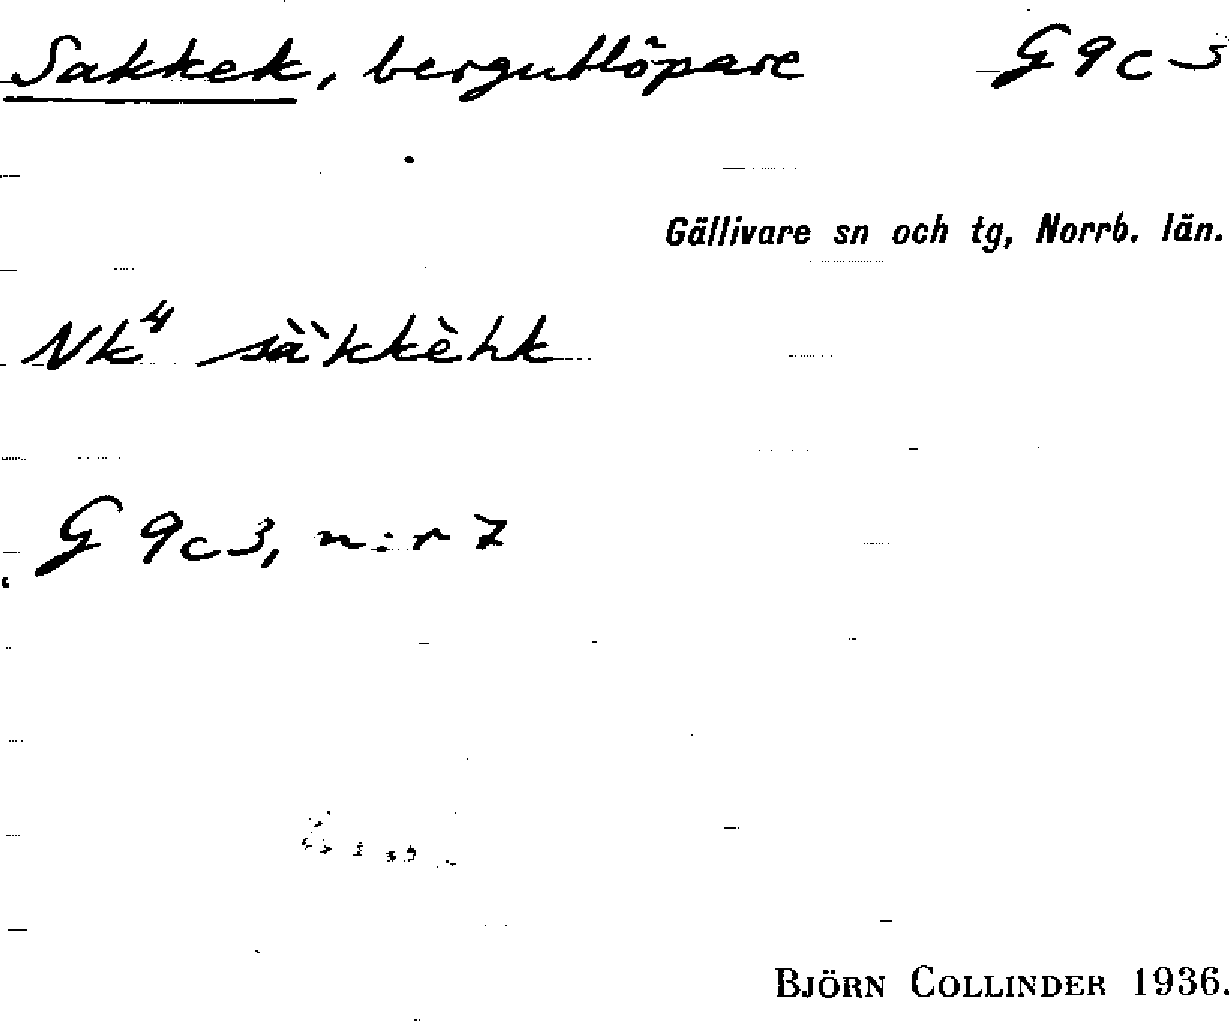 Sakkek, bergutlöpare G 9 c 3
Gällivare sn och tg, Norrb. län.
Nk⁴ sàˋkkèhk
G 9 c 3, n:r 7
BJÖRN COLLINDER 1936.